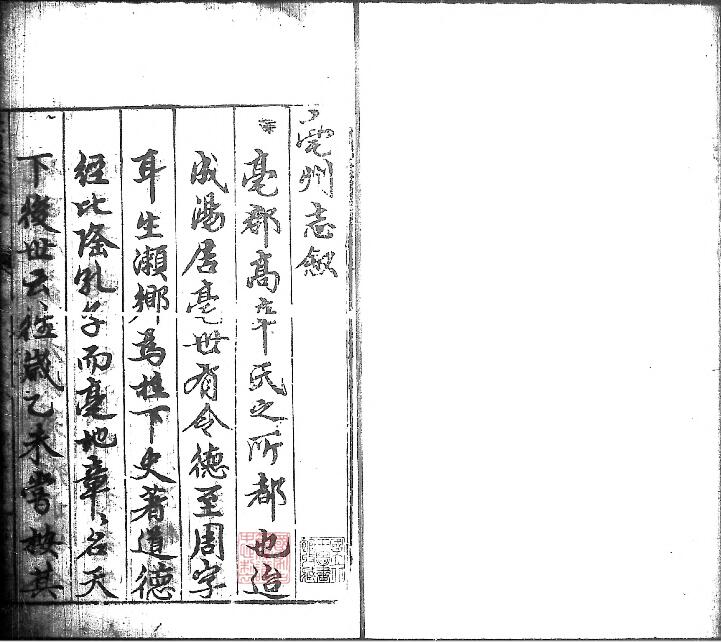 亳州志敘
亳郡高辛氏之所都也迨
成湯居亳世有令德至周李
耳生瀨鄉為柱下史著道德
經比隆孔子而亳地章〻名天
下後世云往歲乙未嘗按其